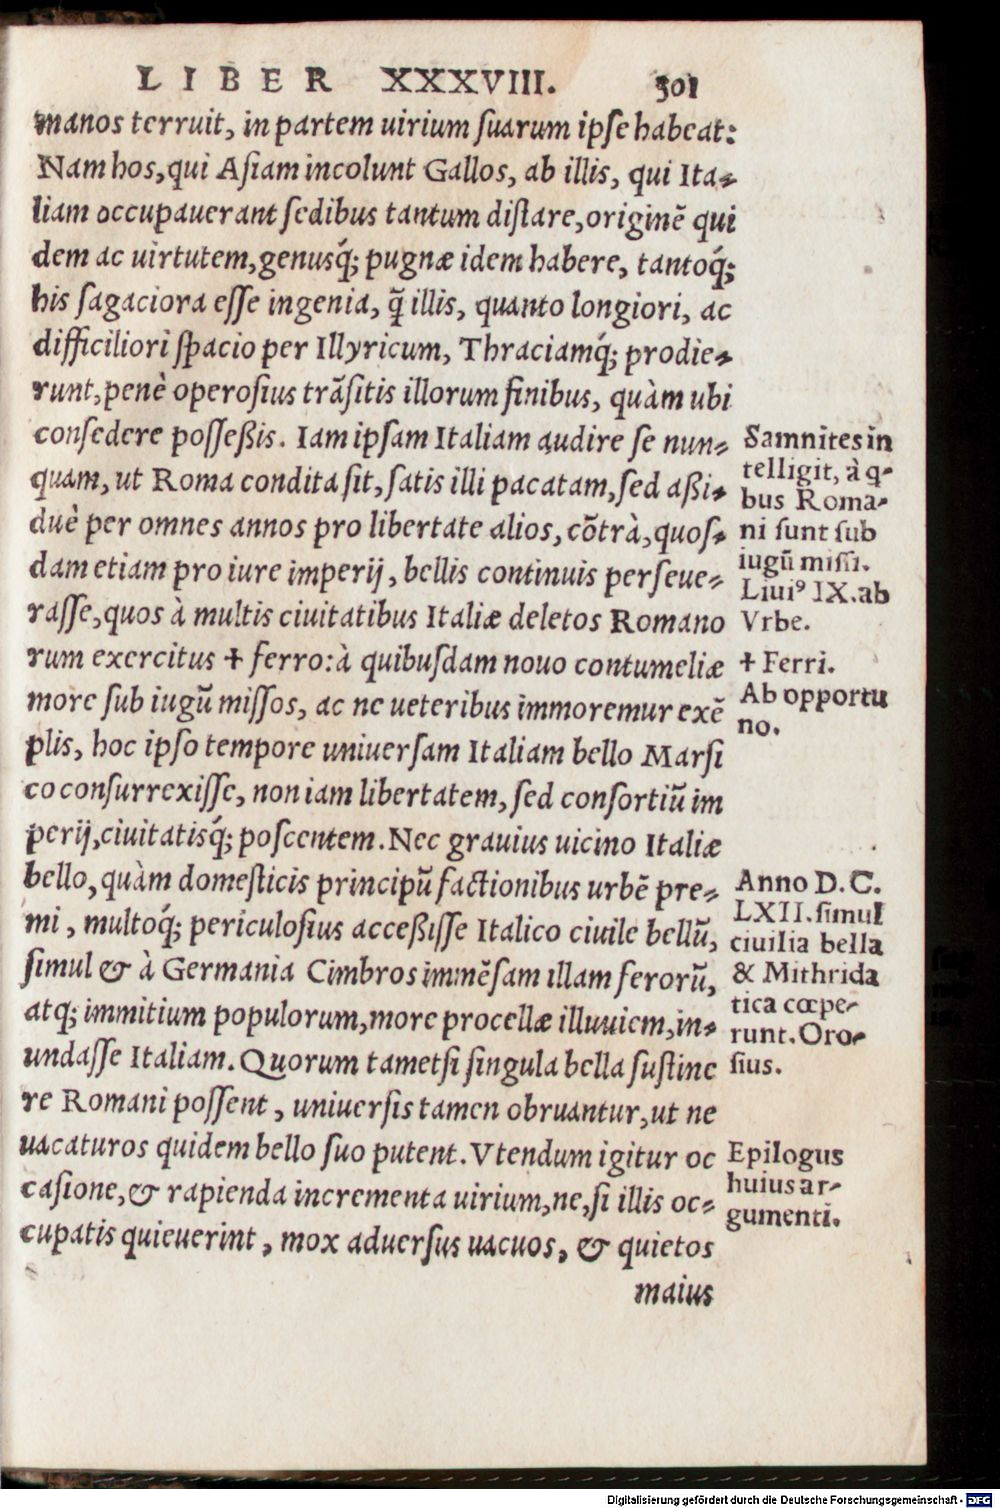 LIBER XXXVIII. 301
manos terruit, in partem uirium ſuarum ipſe habeat:
Nam hos, qui Aſiam incolunt Gallos, ab illis, qui Ita-
liam occupauerant ſedibus tantum diſtare, originẽ qui
dem ac uirtutem, genusq́; pugnæ idem habere, tantoq́;
his ſagaciora eſſe ingenia, q̃ illis, quanto longiori, ac
difficiliori ſpacio per Illyricum, Thraciamq́; prodie-
runt, penè operoſius trãſitis illorum finibus, quàm ubi
conſedere poſſeßis. Iam ipſam Italiam audire ſe nun-
quam, ut Roma condita ſit, ſatis illi pacatam, ſed aßi-
duè per omnes annos pro libertate alios, cõtrà, quoſ-
dam etiam pro iure imperij, bellis continuis perſeue-
raſſe, quos à multis ciuitatibus Italiæ deletos Romano
rum exercitus + ferro: à quibuſdam nouo contumeliæ
more ſub iugũ miſſos, ac ne ueteribus immoremur exẽ
plis, hoc ipſo tempore uniuerſam Italiam bello Marſi
co conſurrexiſſe, non iam libertatem, ſed conſortiũ im
perij, ciuitatisq́; poſcentem. Nec grauius uicino Italiæ
bello, quàm domeſticis principũ factionibus urbẽ pre-
mi, multoq́; periculoſius acceßiſſe Italico ciuile bellũ,
ſimul & à Germania Cimbros immẽſam illam ferorũ,
atq; immitium populorum, more procellæ illuuiem, in-
undaſſe Italiam. Quorum tametſi ſingula bella ſuſtine
re Romani poſſent, uniuerſis tamen obruantur, ut ne
uacaturos quidem bello ſuo putent. Vtendum igitur oc
caſione, & rapienda incrementa uirium, ne, ſi illis oc-
cupatis quieuerint, mox aduerſus uacuos, & quietos
maius
Samnites in
telligit, à q-
bus Roma-
ni ſunt ſub
iugũ miſſi.
Liui⁹ IX. ab
Vrbe.
+ Ferri.
Ab opportu
no.
Anno D. C.
LXII. ſimul
ciuilia bella
& Mithrida
tica cœpe-
runt. Oro-
ſius.
Epilogus
huius ar-
gumenti.
Digitalisierung gefördert durch die Deutsche Forschungsgemeinschaft - DFG